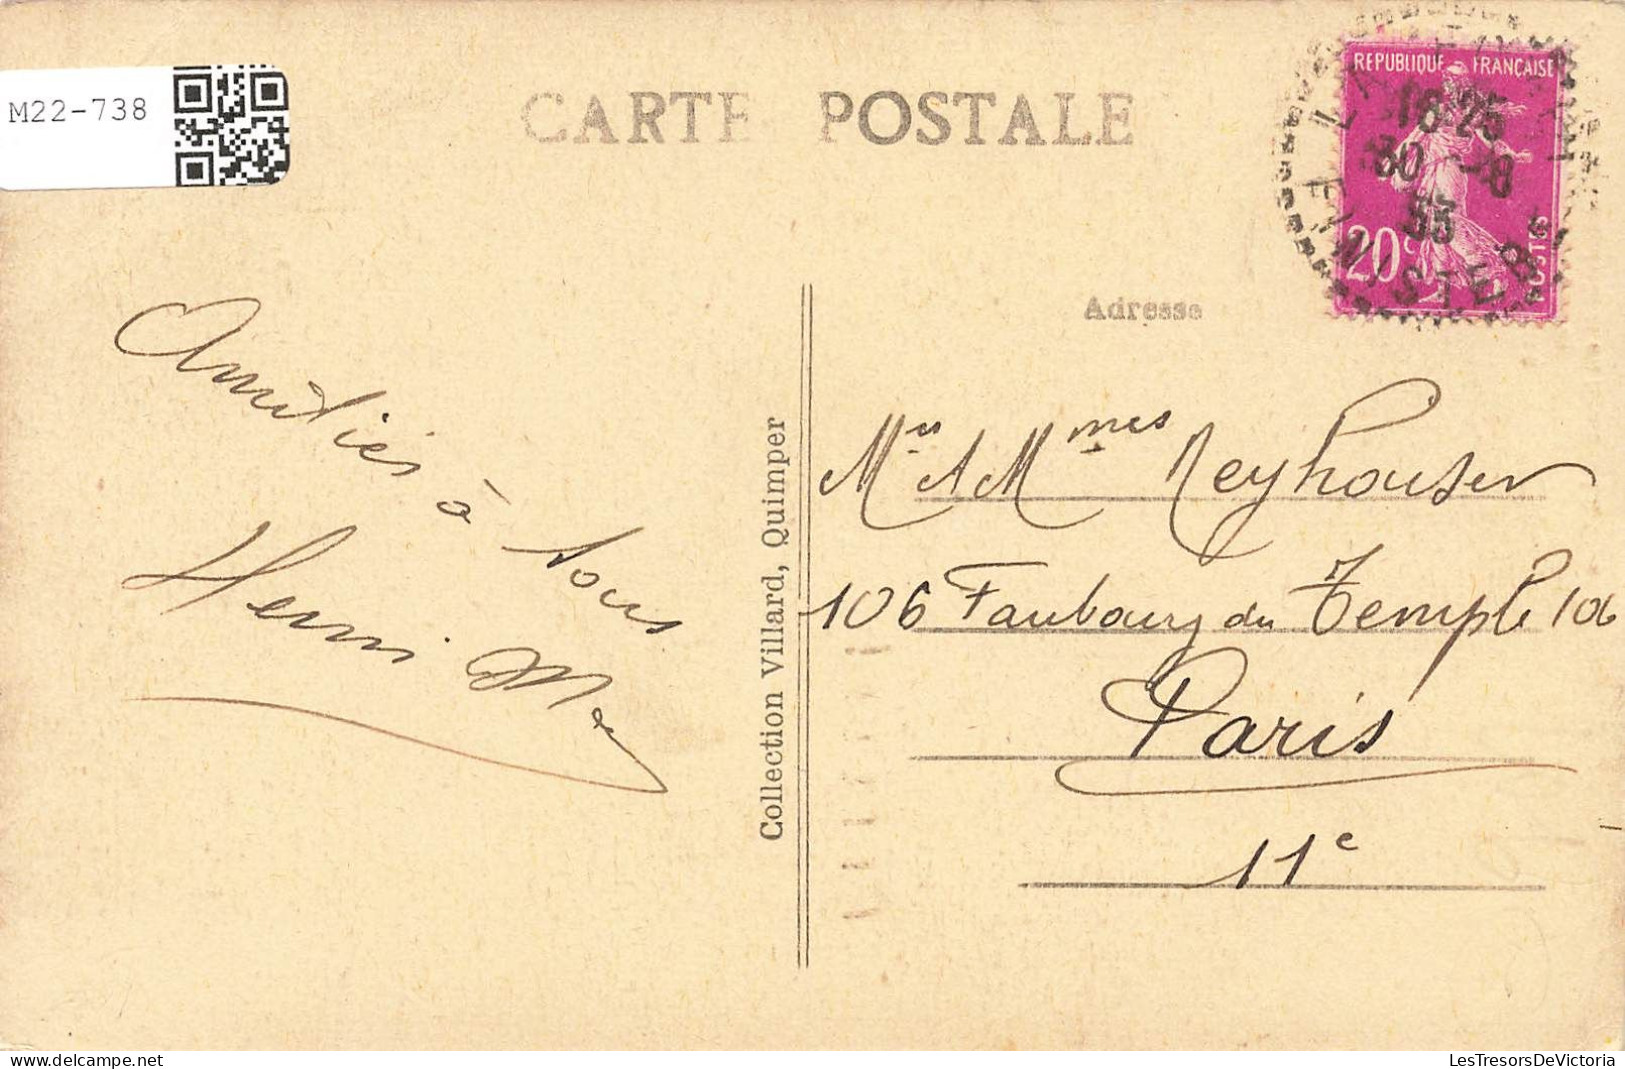 M22-738
CARTE POSTALE
REPUBLIQUE FRANÇAISE
18 25
30 -8
20c
POSTES
FINISTERE
Adresse
Amitiés à tous
Henri
Collection Villard, Quimper
Mrs & Mmes Neyhouser
106 Faubourg du Temple 106
Paris
11e
LesTresorsDeVictoria
www.delcampe.net